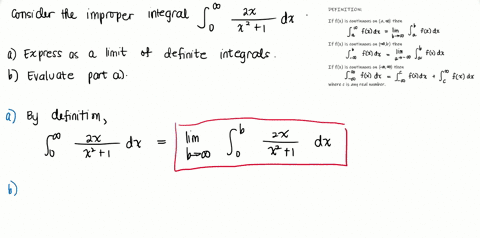 Consider the improper integral ∫₀^∞ 2x/(x²+1) dx.
a) Express as a limit of definite integrals.
b) Evaluate part a).
DEFINITION:
If f(x) is continuous on [a,∞) then
∫ₐ^∞ f(x) dx = lim b→∞ ∫ₐ^b f(x) dx
If f(x) is continuous on (-∞,b] then
∫₋∞^b f(x) dx = lim a→-∞ ∫ₐ^b f(x) dx
If f(x) is continuous on (-∞,∞) then
∫₋∞^∞ f(x) dx = ∫₋∞^c f(x) dx + ∫_c^∞ f(x) dx
where c is any real number.
a) By definition,
∫₀^∞ 2x/(x²+1) dx = lim b→∞ ∫₀^b 2x/(x²+1) dx
b)